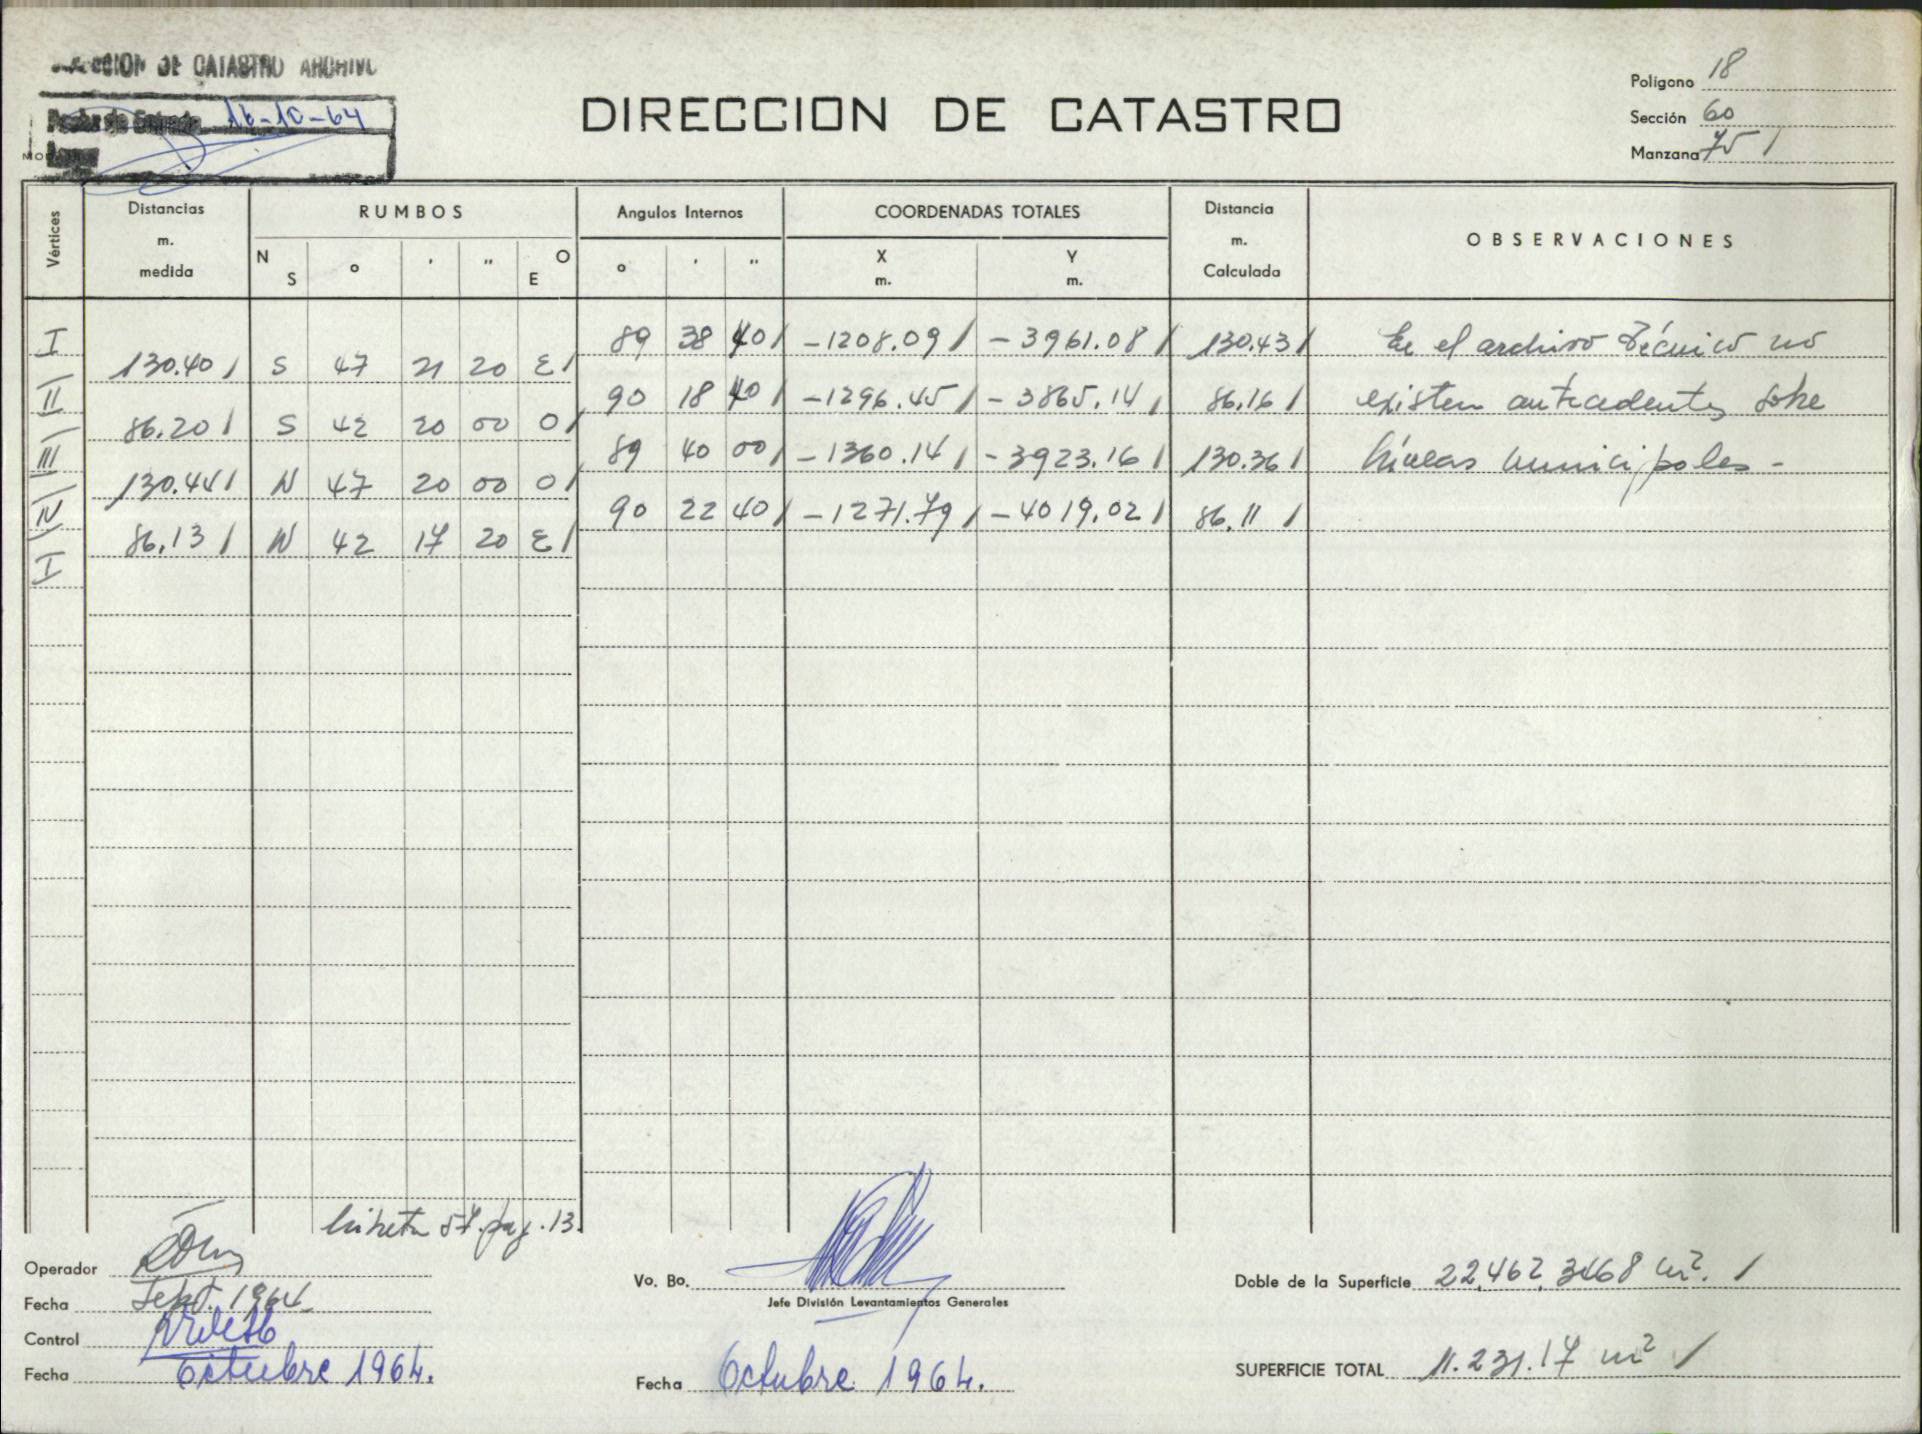 DIRECCION DE CATASTRO ARCHIVO
Fecha de Entrada 16-10-64
DIRECCION DE CATASTRO
Polígono 18
Sección 60
Manzana 75 /
Vértices
Distancias m. medida
RUMBOS
N S ° ' " O E
Angulos Internos
° ' "
COORDENADAS TOTALES
X m. Y m.
Distancia m. Calculada
OBSERVACIONES
I 89 38 40 / -1208.09 / -3961.08 / 130.43 / En el archivo Técnico no
130.40 / S 47 21 20 E /
II 90 18 40 / -1296.45 / -3865.14 / 86.16 / existen antecedentes sobre
86.20 / S 42 20 00 O /
III 89 40 00 / -1360.14 / -3923.16 / 130.36 / líneas municipales -
130.44 / N 47 20 00 O /
IV 90 22 40 / -1271.79 / -4019.02 / 86.11 /
86.13 / N 42 17 20 E /
I
libreta 57. pag. 13.
Operador
Fecha Sept. 1964
Control
Fecha Octubre 1964.
Vo. Bo.
Jefe División Levantamientos Generales
Fecha Octubre 1964.
Doble de la Superficie 22,462,3468 m². /
SUPERFICIE TOTAL 11.231.17 m² /